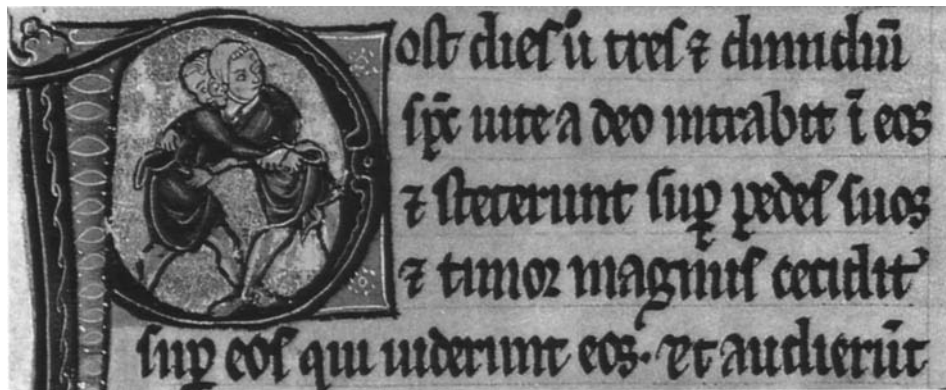 Post dies ū tres ⁊ dimidiū
spc̄ uite a deo intrabit ī eos
⁊ steterunt sup̱ pedes suos
⁊ timor magnus cecidit᾽
sup̱ eos qui uiderunt eos. Et audierūt